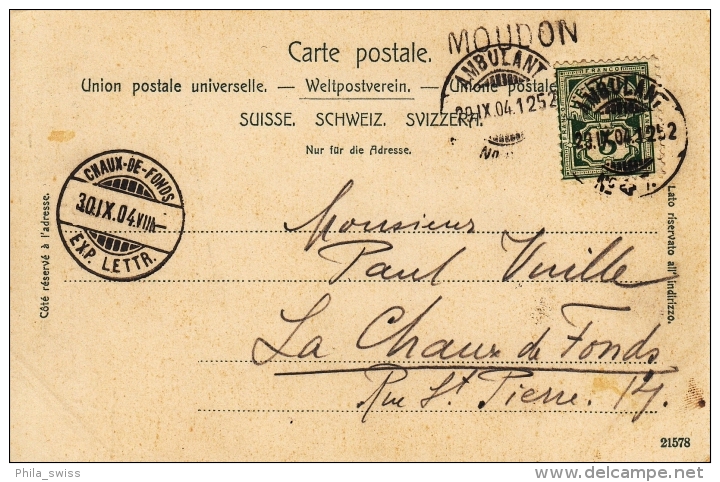 MOUDON
Carte postale.
AMBULANT
Union postale universelle. — Weltpostverein. — Unione postale
29.IX.04.1252
AMBULANT
29.IX.04.1252
FRANCO
5
SUISSE. SCHWEIZ. SVIZZERA.
Nur für die Adresse.
No
No
CHAUX-DE-FONDS
30.IX.04.VIII
EXP. LETTR.
Côté réservé à l'adresse.
Lato riservato all'indirizzo.
Monsieur
Paul Vuille
La Chaux de Fonds
Rue St Pierre. 14.
21578
Phila_swiss
delcampe.net